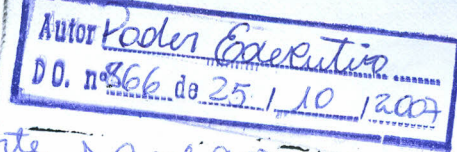 Autor Poder Executivo
D O. nº 866 de 25 / 10 / 2007